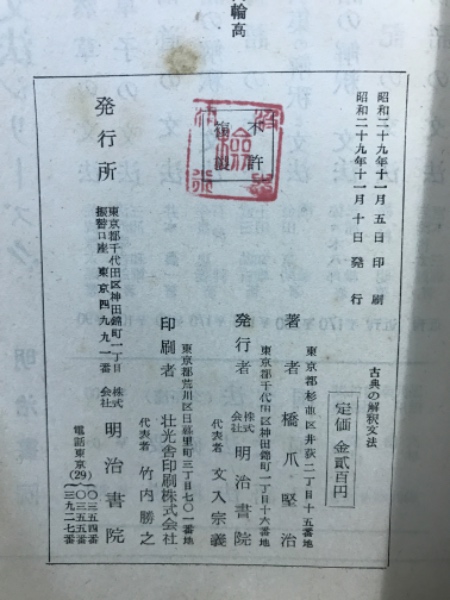 輪高
昭和二十九年十一月五日印刷
昭和二十九年十一月十日発行
不許
複製
検
古典の解釈文法
定価金貳百円
東京都杉並区井荻二丁目十五番地
著者 橋爪堅治
東京都千代田区神田錦町一丁目十六番地
発行者 株式会社 明治書院
代表者 文入宗義
東京都荒川区日暮里町三丁目七〇一番地
印刷者 壮光舎印刷株式会社
代表者 竹内勝之
発行所
東京都千代田区神田錦町一丁目
振替口座 東京四九九一番
株式会社 明治書院
電話東京(29)
〇三五四番
〇三五五番
三九二七番